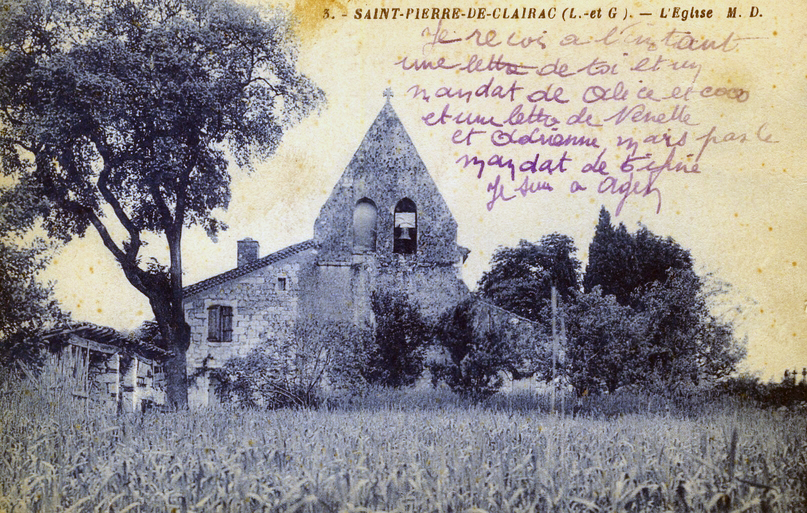 3. - SAINT-PIERRE-DE-CLAIRAC (L.-et G ). — L'Eglise M. D.
Je recois a l'instant
une lettre de toi et un
mandat de Alice et coco
et une lettre de Venette
et Adrienne mais pas le
mandat de
Je suis a Agen